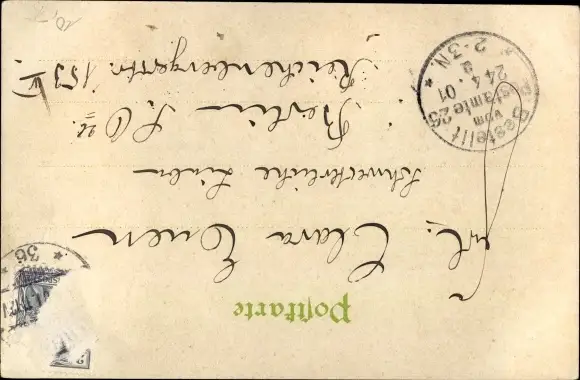 Postkarte
Frl. Clara Ewen
Berlin S.O.
Reichenbergerstr. 153 IV
Bestellt
vom
Postamte 26
24.4.01
2-3N
36
10,-